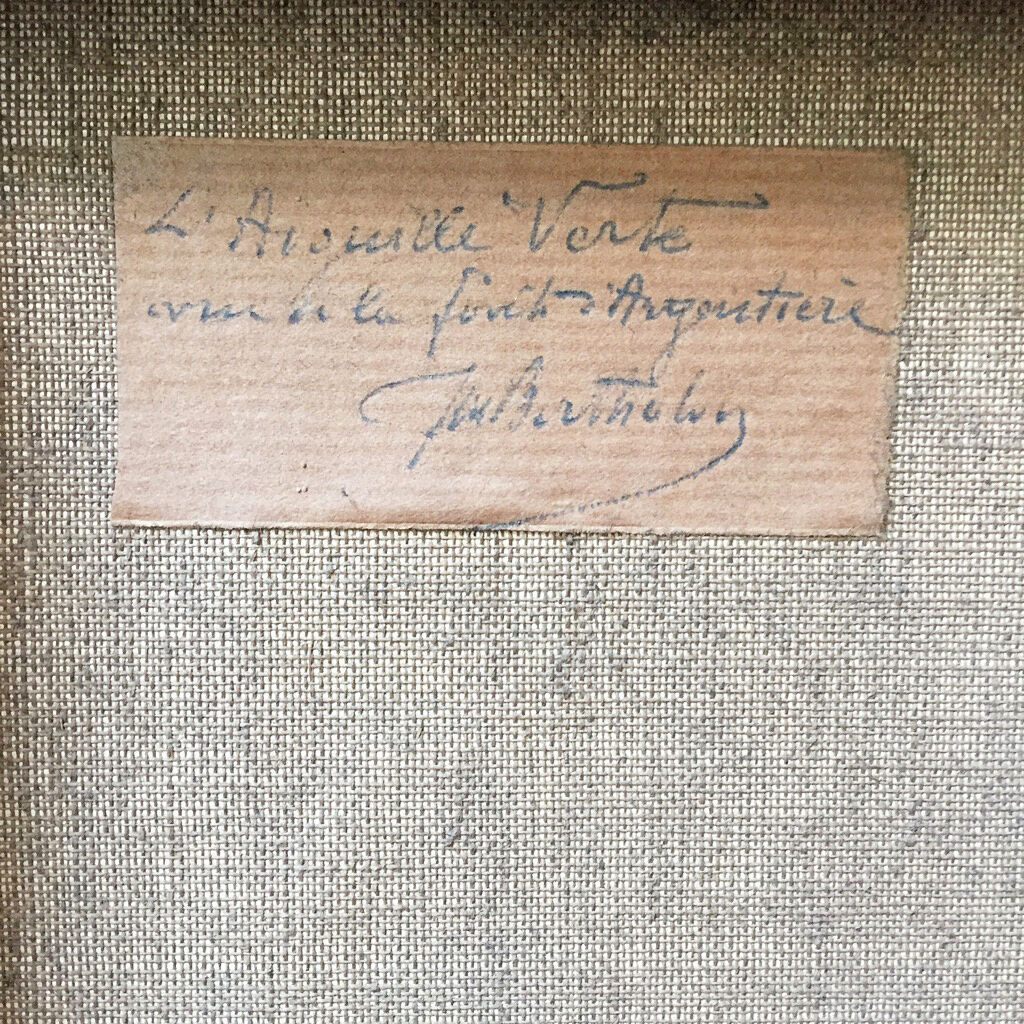 L'Aiguille Verte
vue de la forêt d'Argentière
JM Berthelon